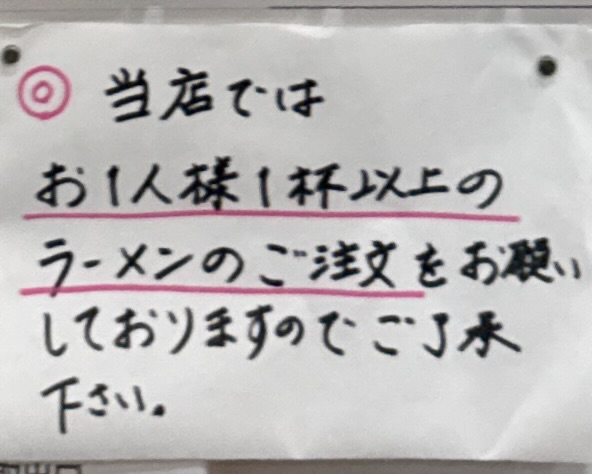 ◎ 当店では
お1人様1杯以上の
ラーメンのご注文をお願い
しておりますのでご了承
下さい。